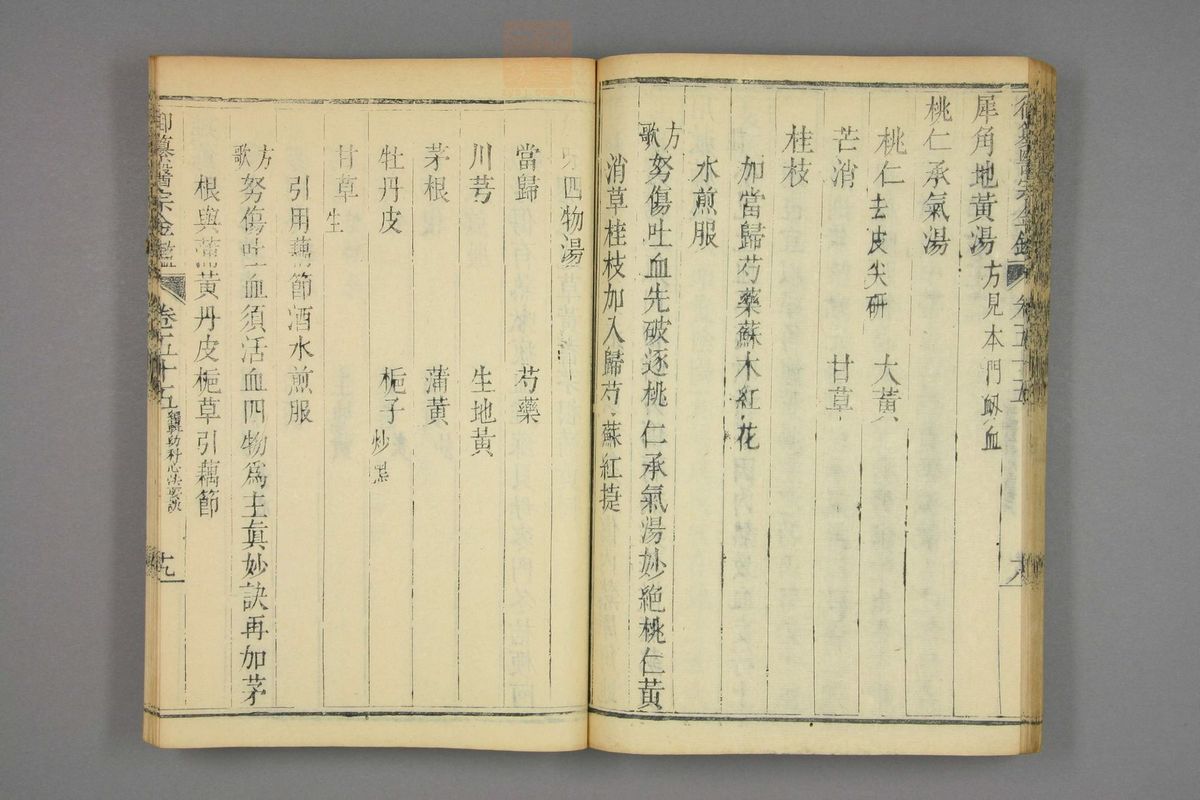 犀角地黃湯 方見本門衂血
桃仁承氣湯
桃仁 去皮尖研 大黃
芒消 甘草
桂枝
加當歸芍藥蘇木紅花
水煎服
方歌 努傷吐血先破逐桃仁承氣湯妙絶桃仁黃
消草桂枝加入歸芍蘇紅㨗
四物湯
當歸 芍藥
川芎 生地黃
茅根 蒲黃
牡丹皮 梔子 炒黑
甘草 生
引用藕節酒水煎服
方歌 努傷吐血須活血四物爲主眞妙訣再加茅
根與蒲黃丹皮梔草引藕節
御纂醫宗金鑑 卷五十五 編輯幼科心法要訣 十九